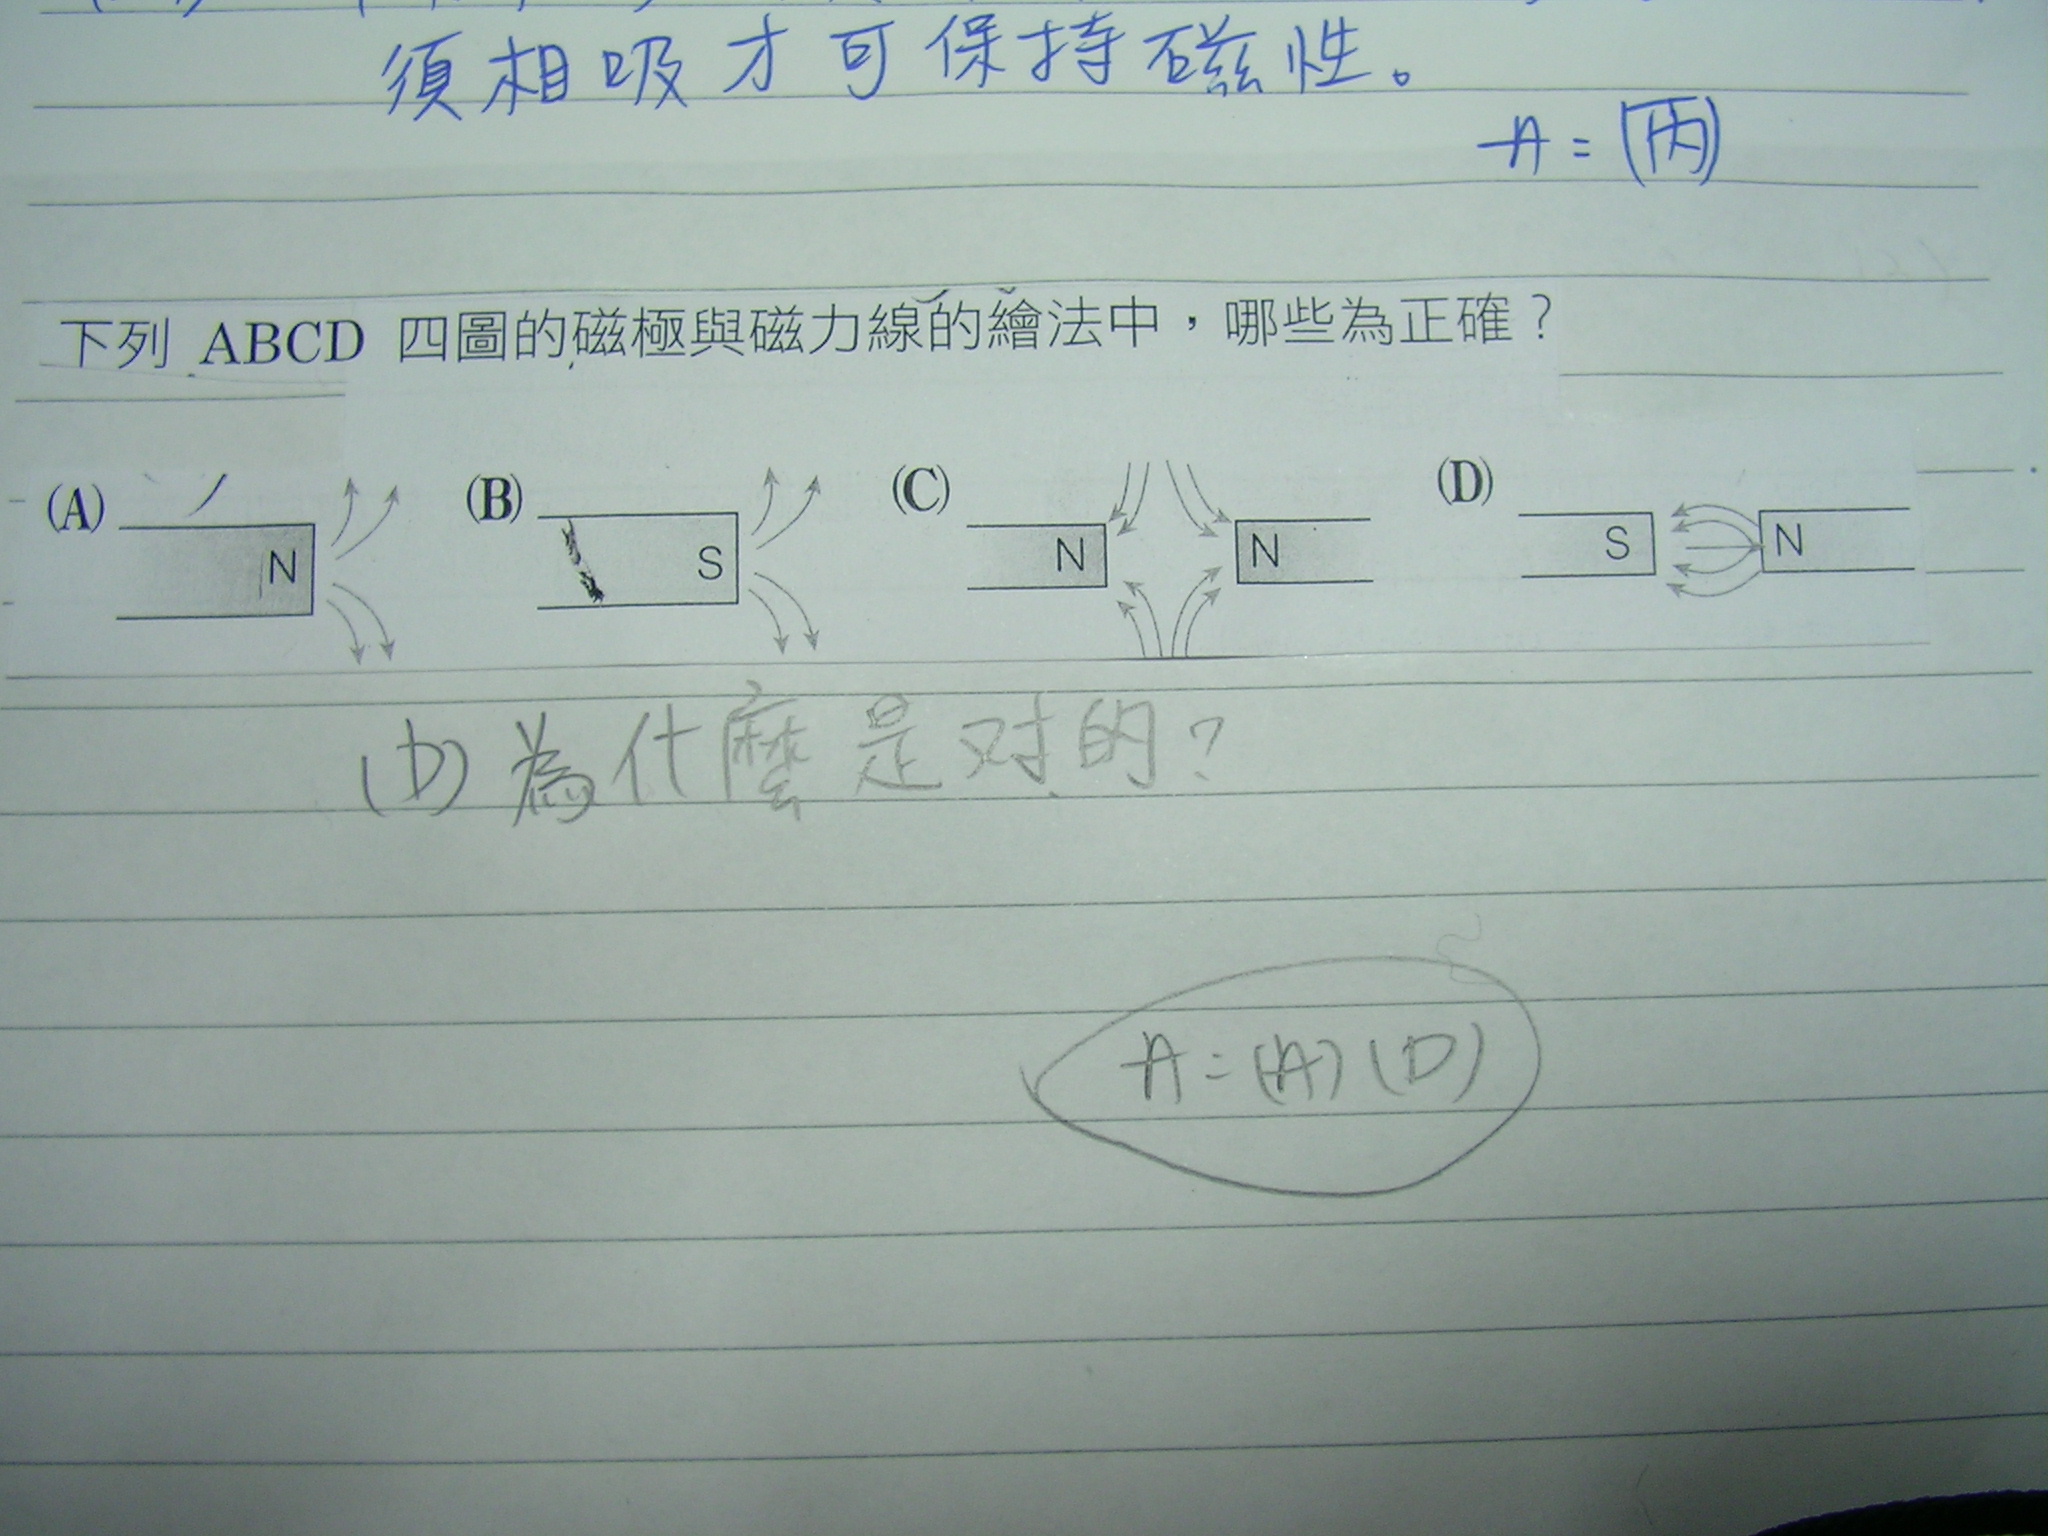 須相吸才可保持磁性。
A=(丙)
下列 ABCD 四圖的磁極與磁力線的繪法中,哪些為正確?
(A) N (B) S (C) N N (D) S N
(D)為什麼是对的?
A=(A)(D)